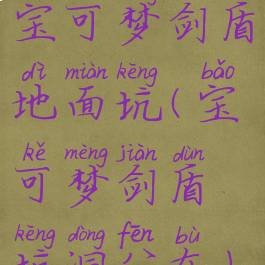 宝可梦剑盾
dì miàn kēng bǎo
地面坑(宝
kě mèng jiàn dùn
可梦剑盾
kēng dòng fēn bù
坑洞分布)